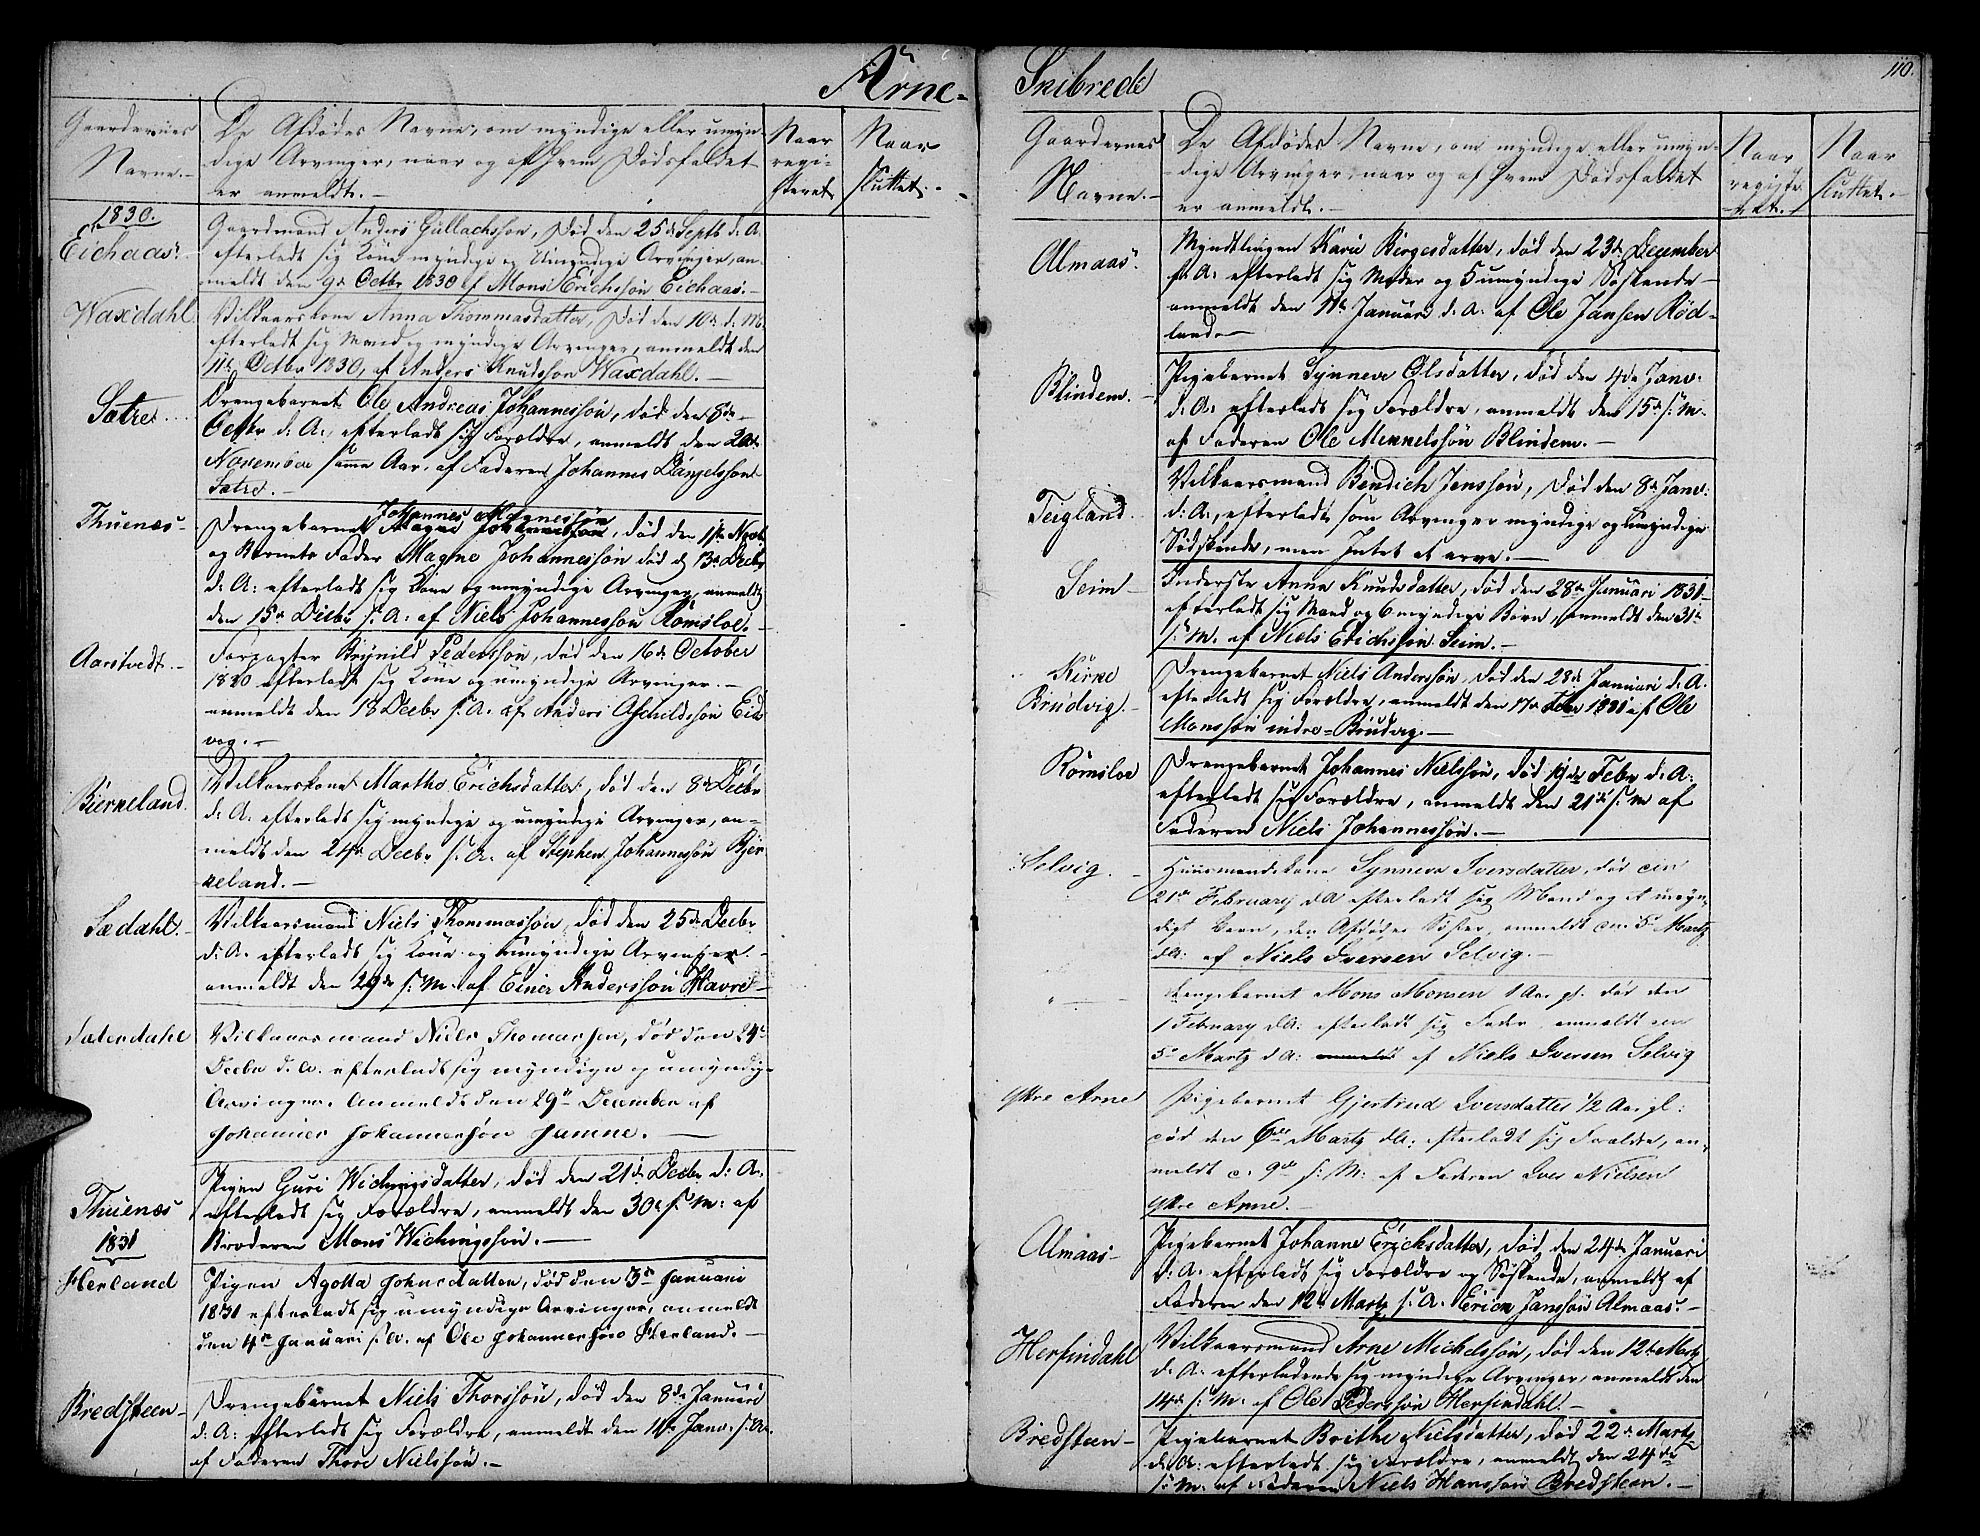 Arne-
Gaardernes
Navne.-
De Afdødes Navne, om myndige eller umyn-
dige Arvinger, naar og af hvem Dødsfaldet
er anmeldt.-
Naar
regi-
steret
Naar
sluttet.-
1830.
Eichaas.
Gaardmand Anders Gullachssøn, død den 25de Septb d. A.
efterladt sig Kone myndige og Umyndige Arvinger, an-
meldt den 9de Octbr 1830 af Mons Erichssøn Eichaas.-
Waxdahl.
Vilkaarskone Anna Thommasdatter, død den 10de d. M.
efterladt sig Mand og myndige Arvinger, anmeldt den
11te Octbr 1830, af Anders Knudssøn Waxdahl.-
Sætre
Drengebarnet Ole Andreas Johannessøn, død den 8de
Octbr d. A., efterladt sig Forældre, anmeldt den 2de
November samme Aar, af Faderen Johannes Dangelssøn
Sætre.-
Thuenæs-
Johannes Magnessøn
Drengebarnet Magne Johannessøn, død den 11te Novb.
og Barnets Fader Magne Johannessøn død d 13de Decbr
d. A. efterladt sig Kone og umyndige Arvinger, anmeldt
den 15de Decbr s. A. af Niels Johannessøn Romsloe.-
Aarstvedt.-
Forpagter Brynild Pederssøn, død den 16de October
1830 efterladt sig Kone og umyndige Arvinger.-
anmeldt den 18 Decbr s. A. af Anders Aschildssøn Eids-
vog.-
Bierneland.
Vilkaarskone Martha Erichsdatter, død den 8de Decbr
d. A. efterladt sig myndige og umyndige Arvinger, an-
meldt den 24de Decbr s. A. af Stephen Johannessøn Bjer-
neland.-
Sædahl.-
Vilkaarsmand Niels Thommassøn, død den 25de Decbr
d. A. efterladt sig Kone og umyndige Arvinger.-
anmeldt den 29de s. M. af Einer Anderssøn Havre-
Sæterdahl
Vilkaarsmand Niels Thomassen, død den 24de
Decbr d. A. efterladt sig myndige og umyndige
Arvinger. Anmeldt den 29de December af
Johannes Johannessøn Jamne.-
Thuenæs
Pigen Guri Wichingsdatter, død den 21de Decbr d. A.
efterladt sig Forældre, anmeldt den 30te s. M. af
Broderen Mons Wichingssøn.-
1831
Herland
Pigen Agotta Johnsdatter, død den 3de Januari
1831 efterladt sig umyndige Arvinger, anmeldt
den 4de Januari s. A. af Ole Johannessøn Herland.-
Bredsteen-
Drengebarnet Niels Thorssøn, død den 8de Januari
d. A. efterladt sig Forældre, anmeldt den 11te Janv. s. A.
af Faderen Thore Nielssøn.-
Skibrede
110.
Gaardernes
Navne.-
De Afdødes Navne, om myndige eller umyn-
dige Arvinger, naar og af hvem Dødsfaldet
er anmeldt.-
Naar
registe-
ret.-
Naar
sluttet.-
Almaas.
Myndtlingen Kari Børgesdatter, død den 23de December
f. A. efterladt sig Moder og 5 umyndige Søskende-
anmeldt den 11te Januari d. A. af Ole Jansen Rød-
land-
Blindem.-
Pigebarnet Synneve Olsdatter, død den 4de Janv.
d. A. efterladt sig Forældre, anmeldt den 15de s. M.
af Faderen Ole Minnelssøn Blindem.-
Teigland
Vilkaarsmand Bendich Jenssøn, død den 8de Janv.
d. A., efterladt som Arvinger myndige og umyndige
Sødskende, men Intet at arve.-
Seim-
Inderste Anna Knudsdatter, død den 28de Januari 1831-
efterladt sig Mand og 6 myndige Børn, anmeldt den 31te
s. M. af Niels Erichssøn Seim.-
Kirne
Brudvig.-
Drengebarnet Niels Anderssøn, død den 28de Januari d. A.
efterladt sig Forældre, anmeldt den 17de Febr 1831 af Ole
Monssøn indre-Brudvig.-
Romsloe
Drengebarnet Johannes Nielssøn, død 19de Febr d. A.
efterladt sig Forældre, anmeldt den 21de s. M af
Faderen Niels Johannessøn.-
Selvig.-
Huusmandskone Synneve Iversdatter, død den
21de February d A efterladt sig Mand og et umyn-
digt Barn, den Afdødes Søster, anmeldt den 5te Martz
d A: af Niels Iversen Selvig.-
"
Drengebarnet Mons Monsen 1 Aar gl. død den
1 February d A: efterladt sig Fader, anmeldt den
5te Martz d A: anmeldt af Niels Iversen Selvig
Ytre Arne
Pigebarnet Gjertrud Iversdatter 1/2 Aar gl:
død den 6te Martz d A: efterladt sig Forældre, an-
meldt d. 9de s: M: af Faderen Iver Nielsen
Ytre Arne.-
Almaas-
Pigebarnet Johanne Erichsdatter, død den 24de Januari
d. A. efterladt sig Forældre og Søskende, anmeldt af
Faderen den 12te Martz s. A. Erich Janssøn Almaas.-
Herfindahl
Vilkaarsmand Arne Michelssøn, død den 12te Martz
d. A. efterladende sig myndige Arvinger, anmeldt den
14de s. M. af Ole Pederssøn Herfindahl.-
Bredsteen-
Pigebarnet Brithe Nielsdatter, død 22de Martz
d. A: efterladt sig Forældre, anmeldt den 24de
s. M. af Faderen Niels Hanssøn Bredsteen.-